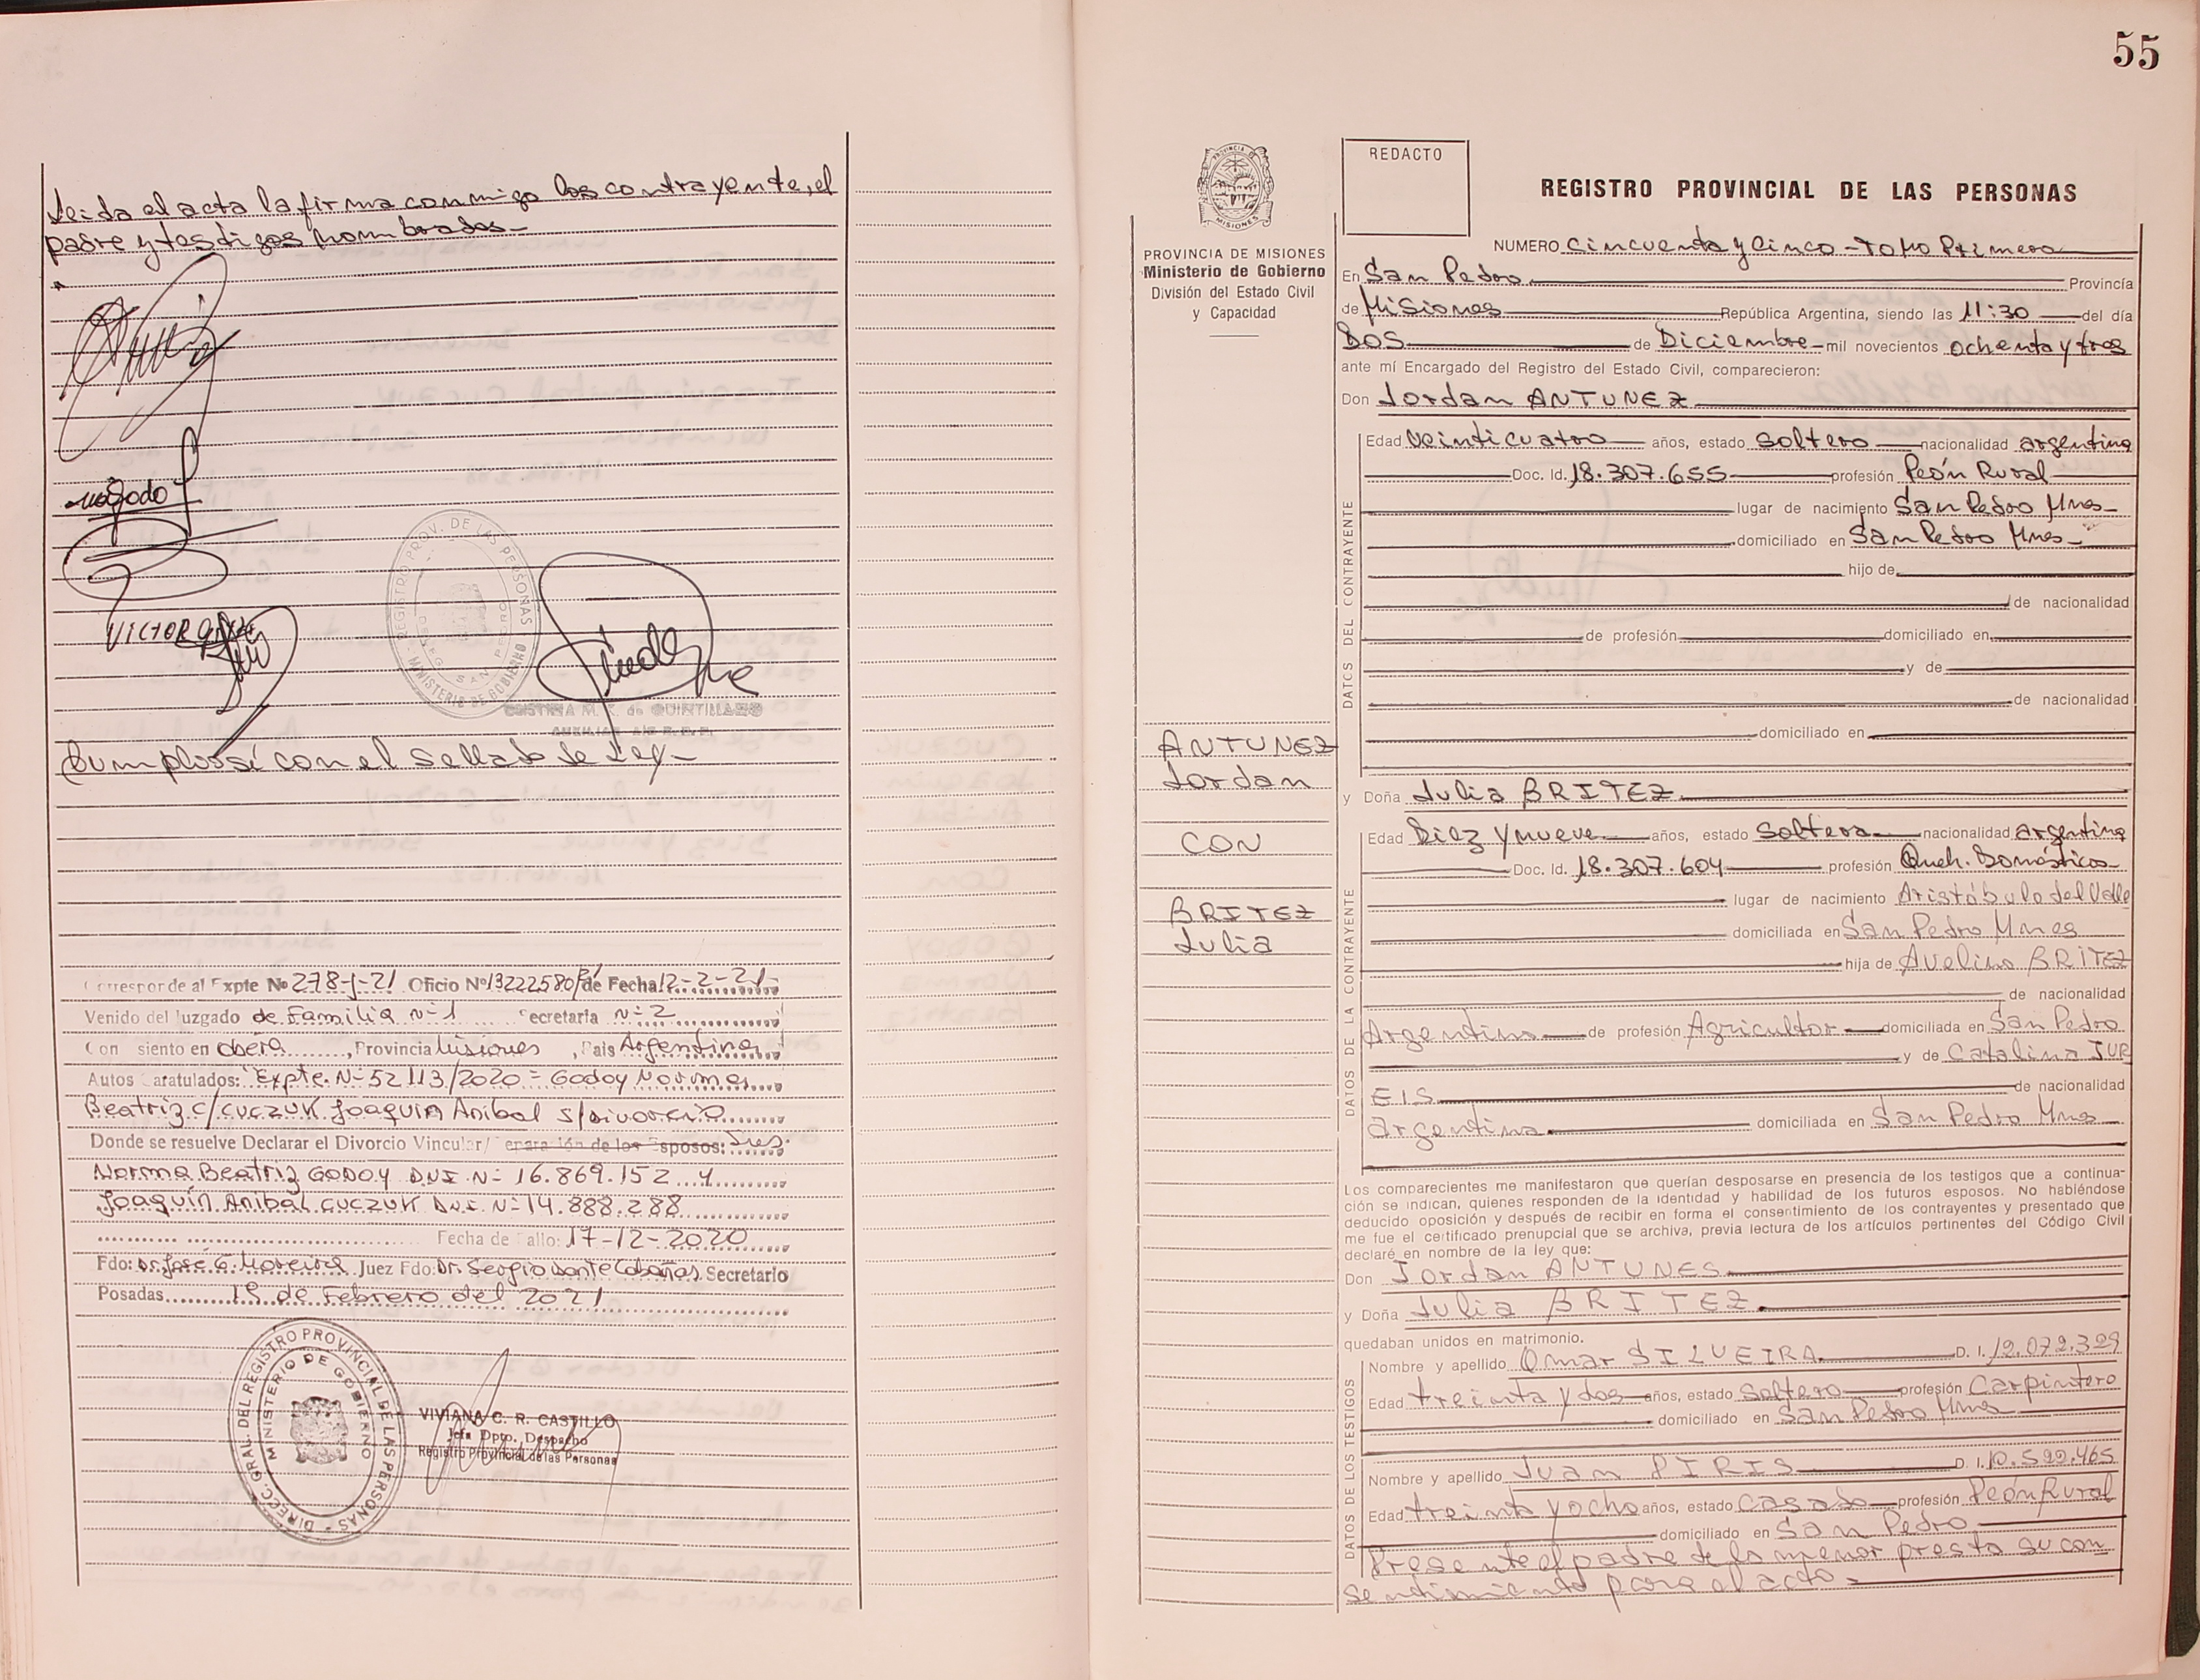 Leida el acta la firma conmigo los contrayente, el
padre y testigos nombrados-
VICTOR
REGISTRO PROV. DE LAS PERSONAS
MINISTERIO DE GOBIERNO
SAN PEDRO
CRISTINA M. K. de QUINTILLANO
Cumpliosí con el sellado de Ley-
Corresponde al Expte Nº 278-J-21 Oficio Nº 13222580/ de Fecha 12-2-21-
Venido del Juzgado de Familia Nº 1 Secretaria Nº 2
Con siento en Oberá, Provincia Misiones, Pais Argentina
Autos Caratulados: "Expte. Nº 52113/2020 = Godoy Norma
Beatriz c/CUCZUK Joaquin Anibal s/Divorcio
Donde se resuelve Declarar el Divorcio Vincular/ Separación de los Esposos: Sres.
Norma Beatriz GODOY D.N.I. Nº 16.869.152 y
Joaquín Anibal CUCZUK D.N.I. Nº 14.888.288
Fecha de Fallo: 17-12-2020
Fdo: Dr. José G. Moreira Juez Fdo: Dr. Sergio Dante Cabañas Secretario
Posadas 19 de Febrero del 2021
DIREC. GRAL. DEL REGISTRO PROVINCIAL DE LAS PERSONAS
MINISTERIO DE GOBIERNO
VIVIANA C. R. CASTILLO
Jefa Dpto. Despacho
Registro Provincial de las Personas
55
PROVINCIA DE MISIONES
PROVINCIA DE MISIONES
Ministerio de Gobierno
División del Estado Civil
y Capacidad
ANTUNEZ
Jordan
CON
BRITEZ
Julia
REDACTO
REGISTRO PROVINCIAL DE LAS PERSONAS
NUMERO Cincuenta y Cinco - TOMO Primero
En San Pedro Provincia
de Misiones República Argentina, siendo las 11:30 del día
DOS de Diciembre mil novecientos ochenta y tres
ante mí Encargado del Registro del Estado Civil, comparecieron:
Don Jordan ANTUNEZ
DATOS DEL CONTRAYENTE
Edad Veinticuatro años, estado Soltero nacionalidad argentina
Doc. Id. 18.307.655 profesión Peón Rural
lugar de nacimiento San Pedro Mnes-
domiciliado en San Pedro Mnes-
hijo de
de nacionalidad
de profesión domiciliado en
y de
de nacionalidad
domiciliado en
y Doña Julia BRITEZ
DATOS DE LA CONTRAYENTE
Edad Diez y nueve años, estado Soltera nacionalidad argentina
Doc. Id. 18.307.604 profesión Queh. Domésticos
lugar de nacimiento Aristóbulo del Valle
domiciliada en San Pedro Mnes
hija de Avelino BRITEZ
de nacionalidad
Argentina de profesión Agricultor domiciliada en San Pedro
y de Catalina JUR
EIS de nacionalidad
argentina domiciliada en San Pedro Mnes
Los comparecientes me manifestaron que querían desposarse en presencia de los testigos que a continua-
ción se indican, quienes responden de la identidad y habilidad de los futuros esposos. No habiéndose
deducido oposición y después de recibir en forma el consentimiento de los contrayentes y presentado que
me fue el certificado prenupcial que se archiva, previa lectura de los artículos pertinentes del Código Civil
declaré en nombre de la ley que:
Don Jordan ANTUNES
y Doña Julia BRITEZ
quedaban unidos en matrimonio.
DATOS DE LOS TESTIGOS
Nombre y apellido Omar SILVEIRA D. I. 12.072.329
Edad treinta y dos años, estado soltero profesión Carpintero
domiciliado en San Pedro Mnes
Nombre y apellido Juan PIRIS D. I. 10.599.465
Edad treinta y ocho años, estado casado profesión Peón Rural
domiciliado en San Pedro
Presente el padre de la menor presta su con
sentimiento para el acto-